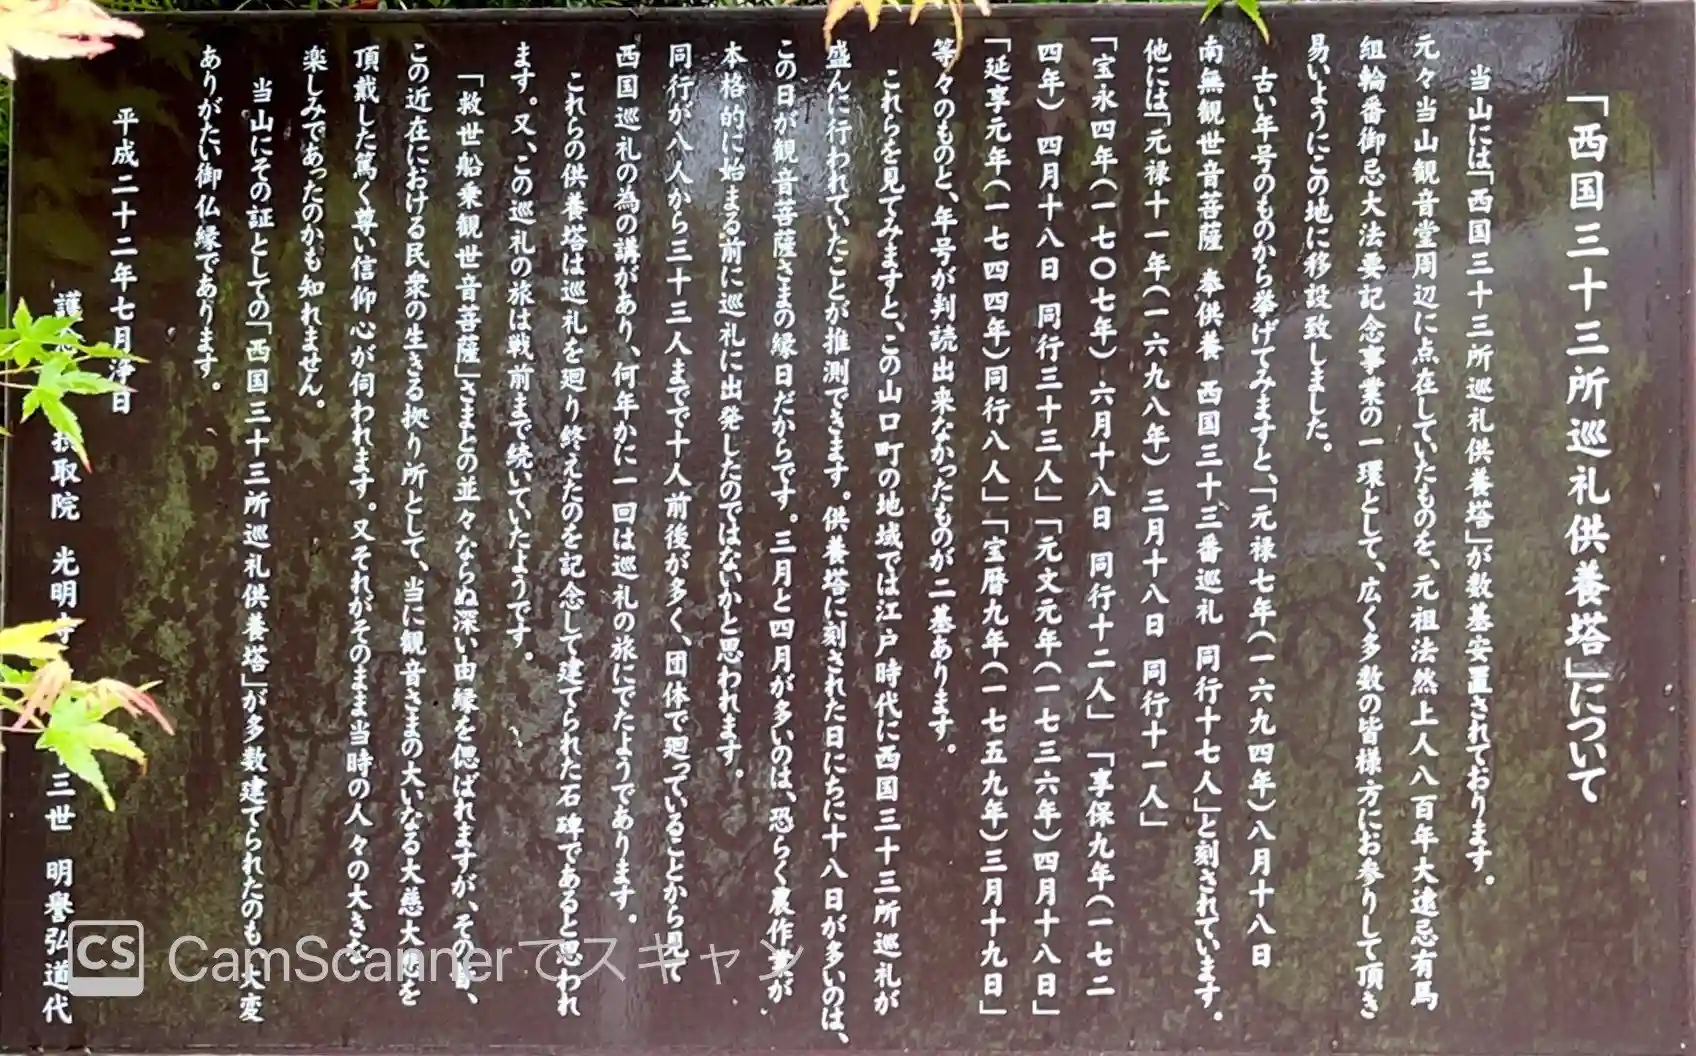 「西国三十三所巡礼供養塔」について
当山には「西国三十三所巡礼供養塔」が数基安置されております。
元々当山観音堂周辺に点在していたものを、元祖法然上人八百年大遠忌有馬
組輪番御忌大法要記念事業の一環として、広く多数の皆様方にお参りして頂き
易いようにこの地に移設致しました。
古い年号のものから挙げてみますと、「元禄七年(一六九四年)八月十八日
南無観世音菩薩 奉供養 西国三十三番巡礼 同行十七人」と刻されています。
他には「元禄十一年(一六九八年)三月十八日 同行十一人」
「宝永四年(一七〇七年)六月十八日 同行十二人」「享保九年(一七二
四年)四月十八日 同行三十三人」「元文元年(一七三六年)四月十八日」
「延享元年(一七四四年)同行八人」「宝暦九年(一七五九年)三月十九日」
等々のものと、年号が判読出来なかったものが二基あります。
これらを見てみますと、この山口町の地域では江戸時代に西国三十三所巡礼が
盛んに行われていたことが推測できます。供養塔に刻された日にちに十八日が多いのは、
この日が観音菩薩さまの縁日だからです。三月と四月が多いのは、恐らく農作業が
本格的に始まる前に巡礼に出発したのではないかと思われます。
同行が八人から三十三人までで十人前後が多く、団体で廻っていることから見て
西国巡礼の為の講があり、何年かに一回は巡礼の旅にでたようであります。
これらの供養塔は巡礼を廻り終えたのを記念して建てられた石碑であると思われ
ます。又、この巡礼の旅は戦前まで続いていたようです。
「救世船乗観世音菩薩」さまとの並々ならぬ深い由縁を偲ばれますが、その昔、
この近在における民衆の生きる拠り所として、当に観音さまの大いなる大慈大悲を
頂戴した篤く尊い信仰心が伺われます。又それがそのまま当時の人々の大きな
楽しみであったのかも知れません。
当山にその証としての「西国三十三所巡礼供養塔」が多数建てられたのも、大変
ありがたい御仏縁であります。
平成二十二年七月浄日
護 摂取院 光明寺 三世 明誉弘道代
CS CamScannerでスキャン